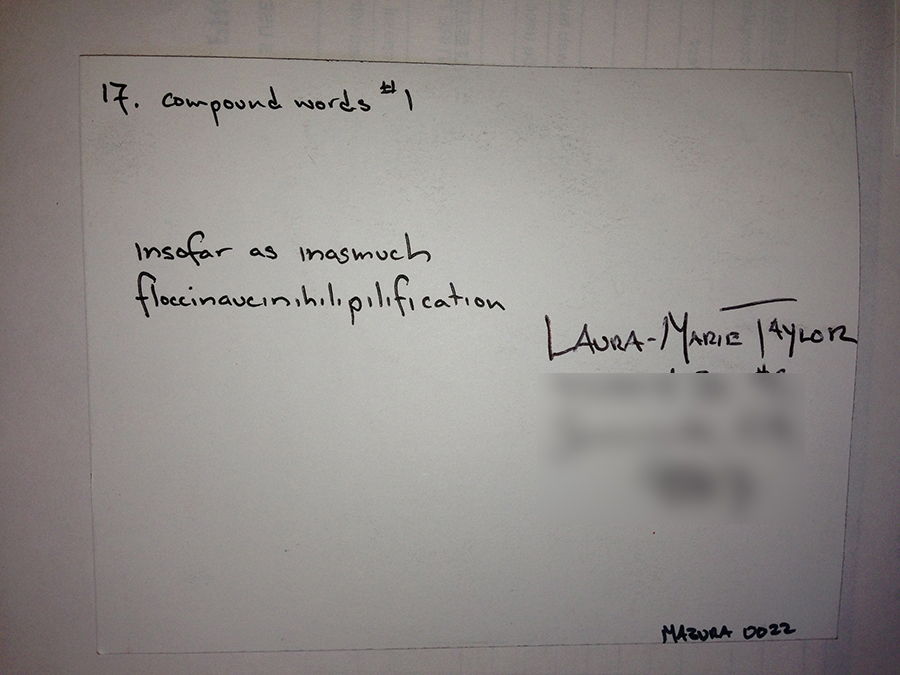 17. compound words #1
insofar as inasmuch
floccinaucinihilipilification
LAURA-MARIE TAYLOR
MAZURA 0022